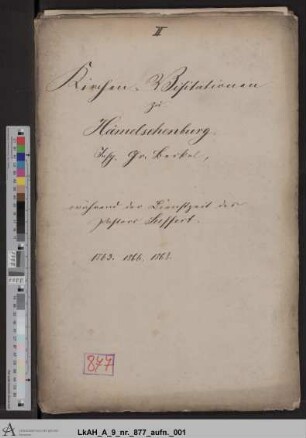 I
Kirchen-Visitationen
zu
Hämelschenburg
Insp. Gr. Berkel,
während der Dienstzeit des
Pastors
1863. 1866.
877
LkAH_A_9_nr._877_aufn._001